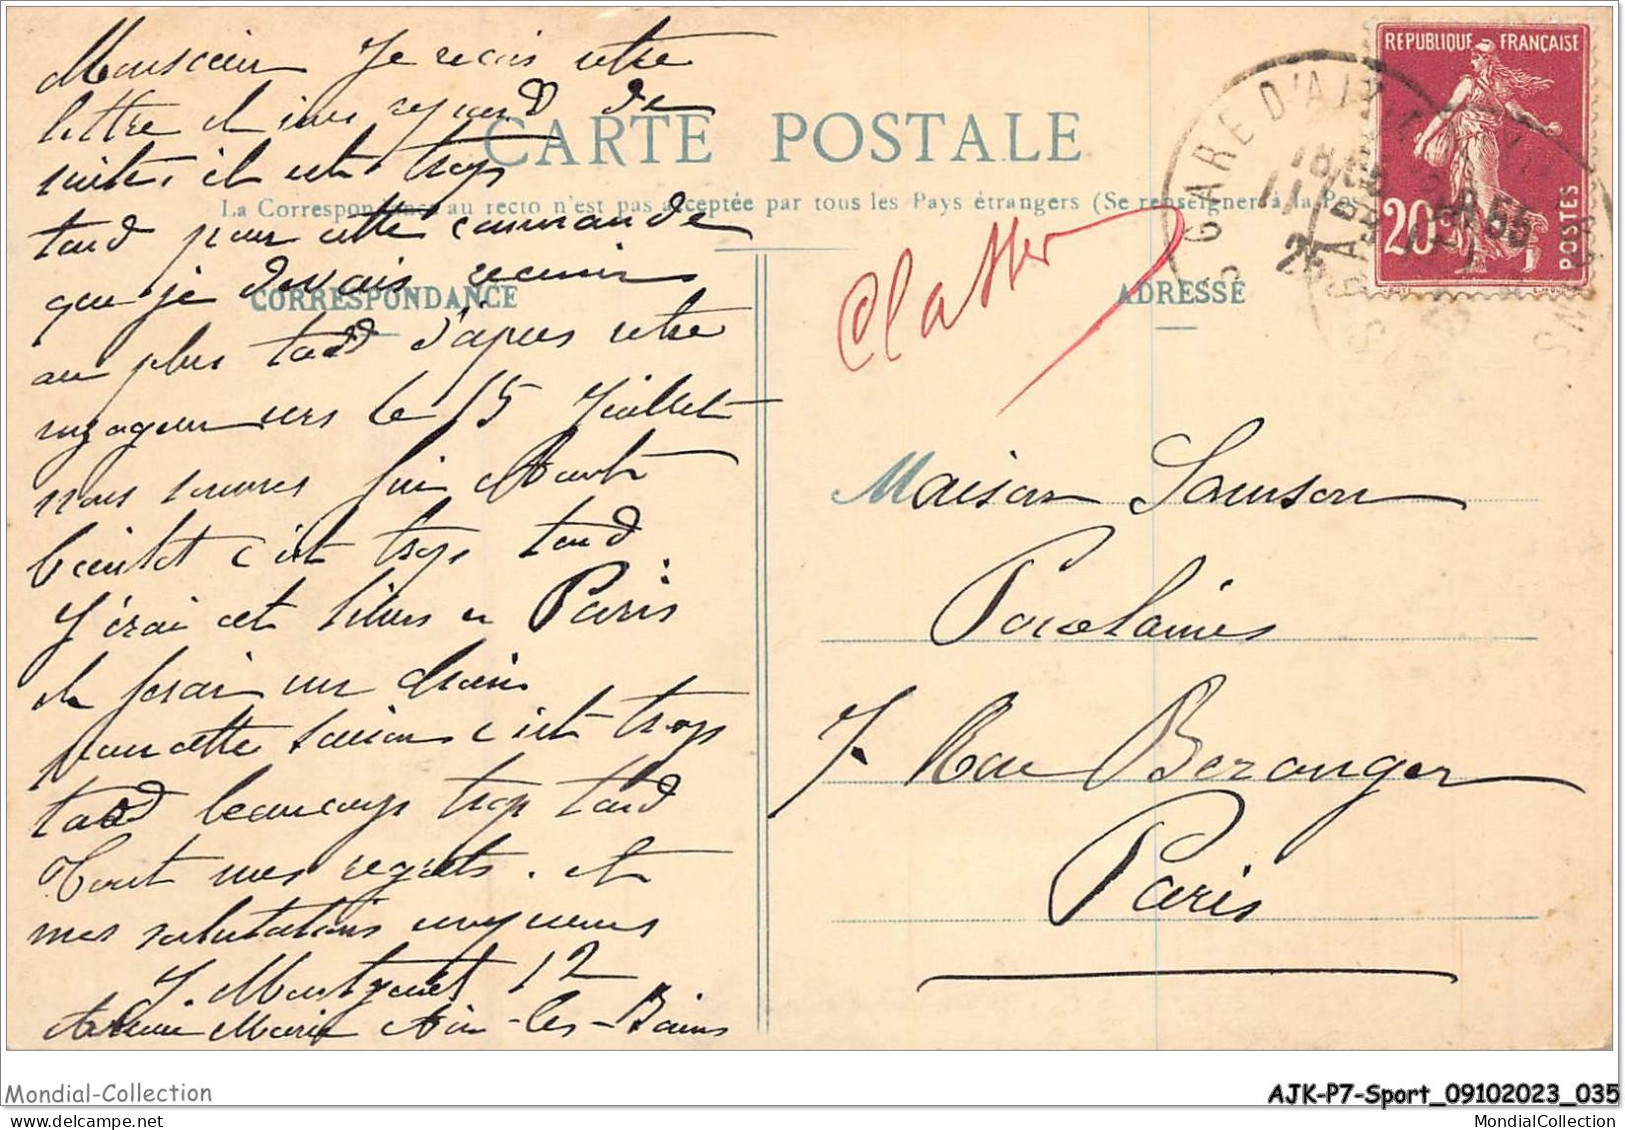 Monsieur Je recois votre
lettre et vous repond de
suite, il est trop
tard pour cette commande
que je devais recevoir
au plus tard d'apres votre
voyageur vers le 15 Juillet
nous sommes fin Aout
bientot c'est trop tard
J'irai cet hiver a Paris
et ferai un choix
pour cette saison c'est trop
tard beaucoup trop tard
Tout mes regrets. et
mes salutations
J. 12
Marie Aix-les-Bains
CARTE POSTALE
La Correspondance au recto n'est pas acceptée par tous les Pays étrangers (Se renseigner à la Pos
CORRESPONDANCE
ADRESSE
Classer
Maison Samson
Porcelaines
7 Rue Beranger
Paris
REPUBLIQUE FRANÇAISE
20c
POSTES
GARE D'AIX
Mondial-Collection
AJK-P7-Sport_09102023_035
MondialCollection